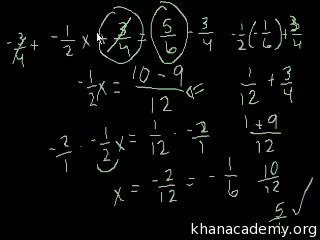 -3/4 + -1/2 x + 3/4 = 5/6 - 3/4
-1/2 x = (10 - 9)/12
-2/1 · -1/2 x = 1/12 · -2/1
x = -2/12 = -1/6
-1/2(-1/6) + 3/4
1/12 + 3/4
(1 + 9)/12
10/12
5
khanacademy.org